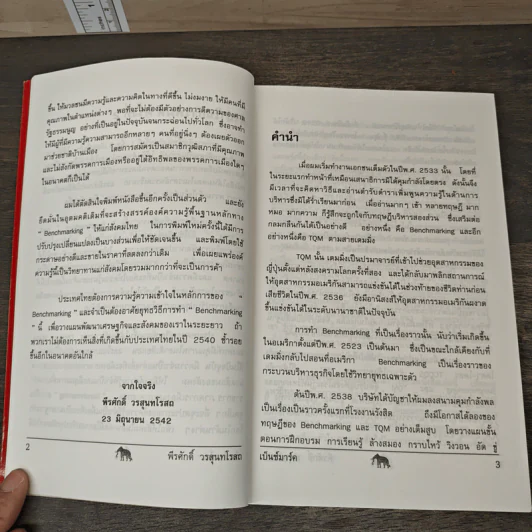 ขึ้น ให้มวลชนมีความรู้และความคิดในทางที่ดีขึ้น ไม่งมงาย ให้มีคนที่มี
คุณภาพในตำแหน่งต่างๆ พอที่จะไม่ต้องมีตัวอย่างการตีความของศาล
รัฐธรรมนูญ อย่างที่เป็นอยู่ในปัจจุบันจนกระฉ่อนไปทั่วโลก ซึ่งอาจทำ
ให้ผู้ที่มีความรู้ความสามารถอีกหลายๆ คนที่อยู่นิ่งๆ ต้องเผยตัวออก
มาช่วยชาติบ้านเมือง โดยการสมัครเป็นสมาชิกวุฒิสภาที่มีคุณภาพ
และไม่สังกัดพรรคการเมืองหรืออยู่ใต้อิทธิพลของพรรคการเมืองใดๆ
ในอนาคตก็เป็นได้
ผมได้ตัดสินใจพิมพ์หนังสือขึ้นอีกครั้งเป็นส่วนตัว และยัง
ยึดมั่นในอุดมคติเดิมที่จะสร้างสรรค์องค์ความรู้พื้นฐานหลักทาง
“ Benchmarking ” ให้แก่สังคมไทย ในการพิมพ์ใหม่ครั้งนี้ได้มีการ
ปรับปรุงเปลี่ยนแปลงเป็นบางส่วนเพื่อให้ชัดเจนขึ้น และพิมพ์โดยใช้
กระดาษอย่างดีและขายในราคาที่ลดลงกว่าเดิม เพื่อเผยแพร่องค์
ความรู้นี้เป็นวิทยาทานแก่สังคมโดยรวมมากกว่าที่จะเป็นการค้า
ประเทศไทยต้องการความรู้ความเข้าใจในหลักการของ “
Benchmarking ” และจำเป็นต้องอาศัยยุทธวิธีการทำ “ Benchmarking
” นี้ เพื่อวางแผนพัฒนาเศรษฐกิจและสังคมของเราในระยะยาว ถ้า
พวกเราไม่ต้องการเห็นสิ่งที่เกิดขึ้นกับประเทศไทยในปี 2540 ซ้ำรอย
ขึ้นอีกในอนาคตอันใกล้
จากใจจริง
พีรศักดิ์ วรสุนทโรสถ
23 มิถุนายน 2542
2
พีรศักดิ์ วรสุนทโรสถ
คำนำ
เมื่อผมเริ่มทำงานเอกชนเต็มตัวในปีพ.ศ. 2533 นั้น โดยที่
ในระยะแรกทำหน้าที่เหมือนเสนาธิการมิได้คุมกำลังโดยตรง ดังนั้นจึง
มีเวลาที่จะคิดหาวิธีและอ่านตำรับตำราเพิ่มพูนความรู้ในด้านการ
บริหารซึ่งมิได้ร่ำเรียนมาก่อน เมื่ออ่านมากๆ เข้า หลายทฤษฎี มาก
หมอ มากความ ก็รู้สึกจะถูกใจกับทฤษฎีบริหารสองส่วน ซึ่งเสริมต่อ
กลมกลืนกันได้เป็นอย่างดี อย่างหนึ่ง คือ Benchmarking และอีก
อย่างหนึ่งคือ TQM ตามสายเดมมิ่ง
TQM นั้น เดมมิ่งเป็นปรมาจารย์ที่เข้าไปช่วยอุตสาหกรรมของ
ญี่ปุ่นตั้งแต่หลังสงครามโลกครั้งที่สอง และได้กลับมาพลิกสถานการณ์
ให้อุตสาหกรรมอเมริกันสามารถแข่งขันได้ในช่วงท้ายของชีวิตท่านก่อน
เสียชีวิตในปีพ.ศ. 2536 ยังมีอานิสงส์ให้อุตสาหกรรมอเมริกันผงาด
ขึ้นแข่งขันได้ในระดับนานาชาติในปัจจุบัน
การทำ Benchmarking ที่เป็นเรื่องราวนั้น นับว่าเริ่มเกิดขึ้น
ในอเมริกาตั้งแต่ปีพ.ศ. 2523 เป็นต้นมา ซึ่งเป็นขณะใกล้เคียงกับที่
เดมมิ่งกลับไปสอนที่อเมริกา Benchmarking เป็นเรื่องราวของ
กระบวนบริหารธุรกิจโดยใช้วิทยายุทธเฉพาะตัว
ต้นปีพ.ศ. 2538 บริษัทได้บัญชาให้ผมลงสนามคุมกำลังพล
เป็นเรื่องเป็นราวครั้งแรกที่โรงงานรังสิต ถึงมีโอกาสได้ลองของ
ทฤษฎีของ Benchmarking และ TQM อย่างเต็มสูบ โดยวางแผนขั้น
ตอนการฝึกอบรม การเรียนรู้ ล้างสมอง กราบไหว้ วิงวอน อัด ขู่
เบ็นช์มาร์ค
3